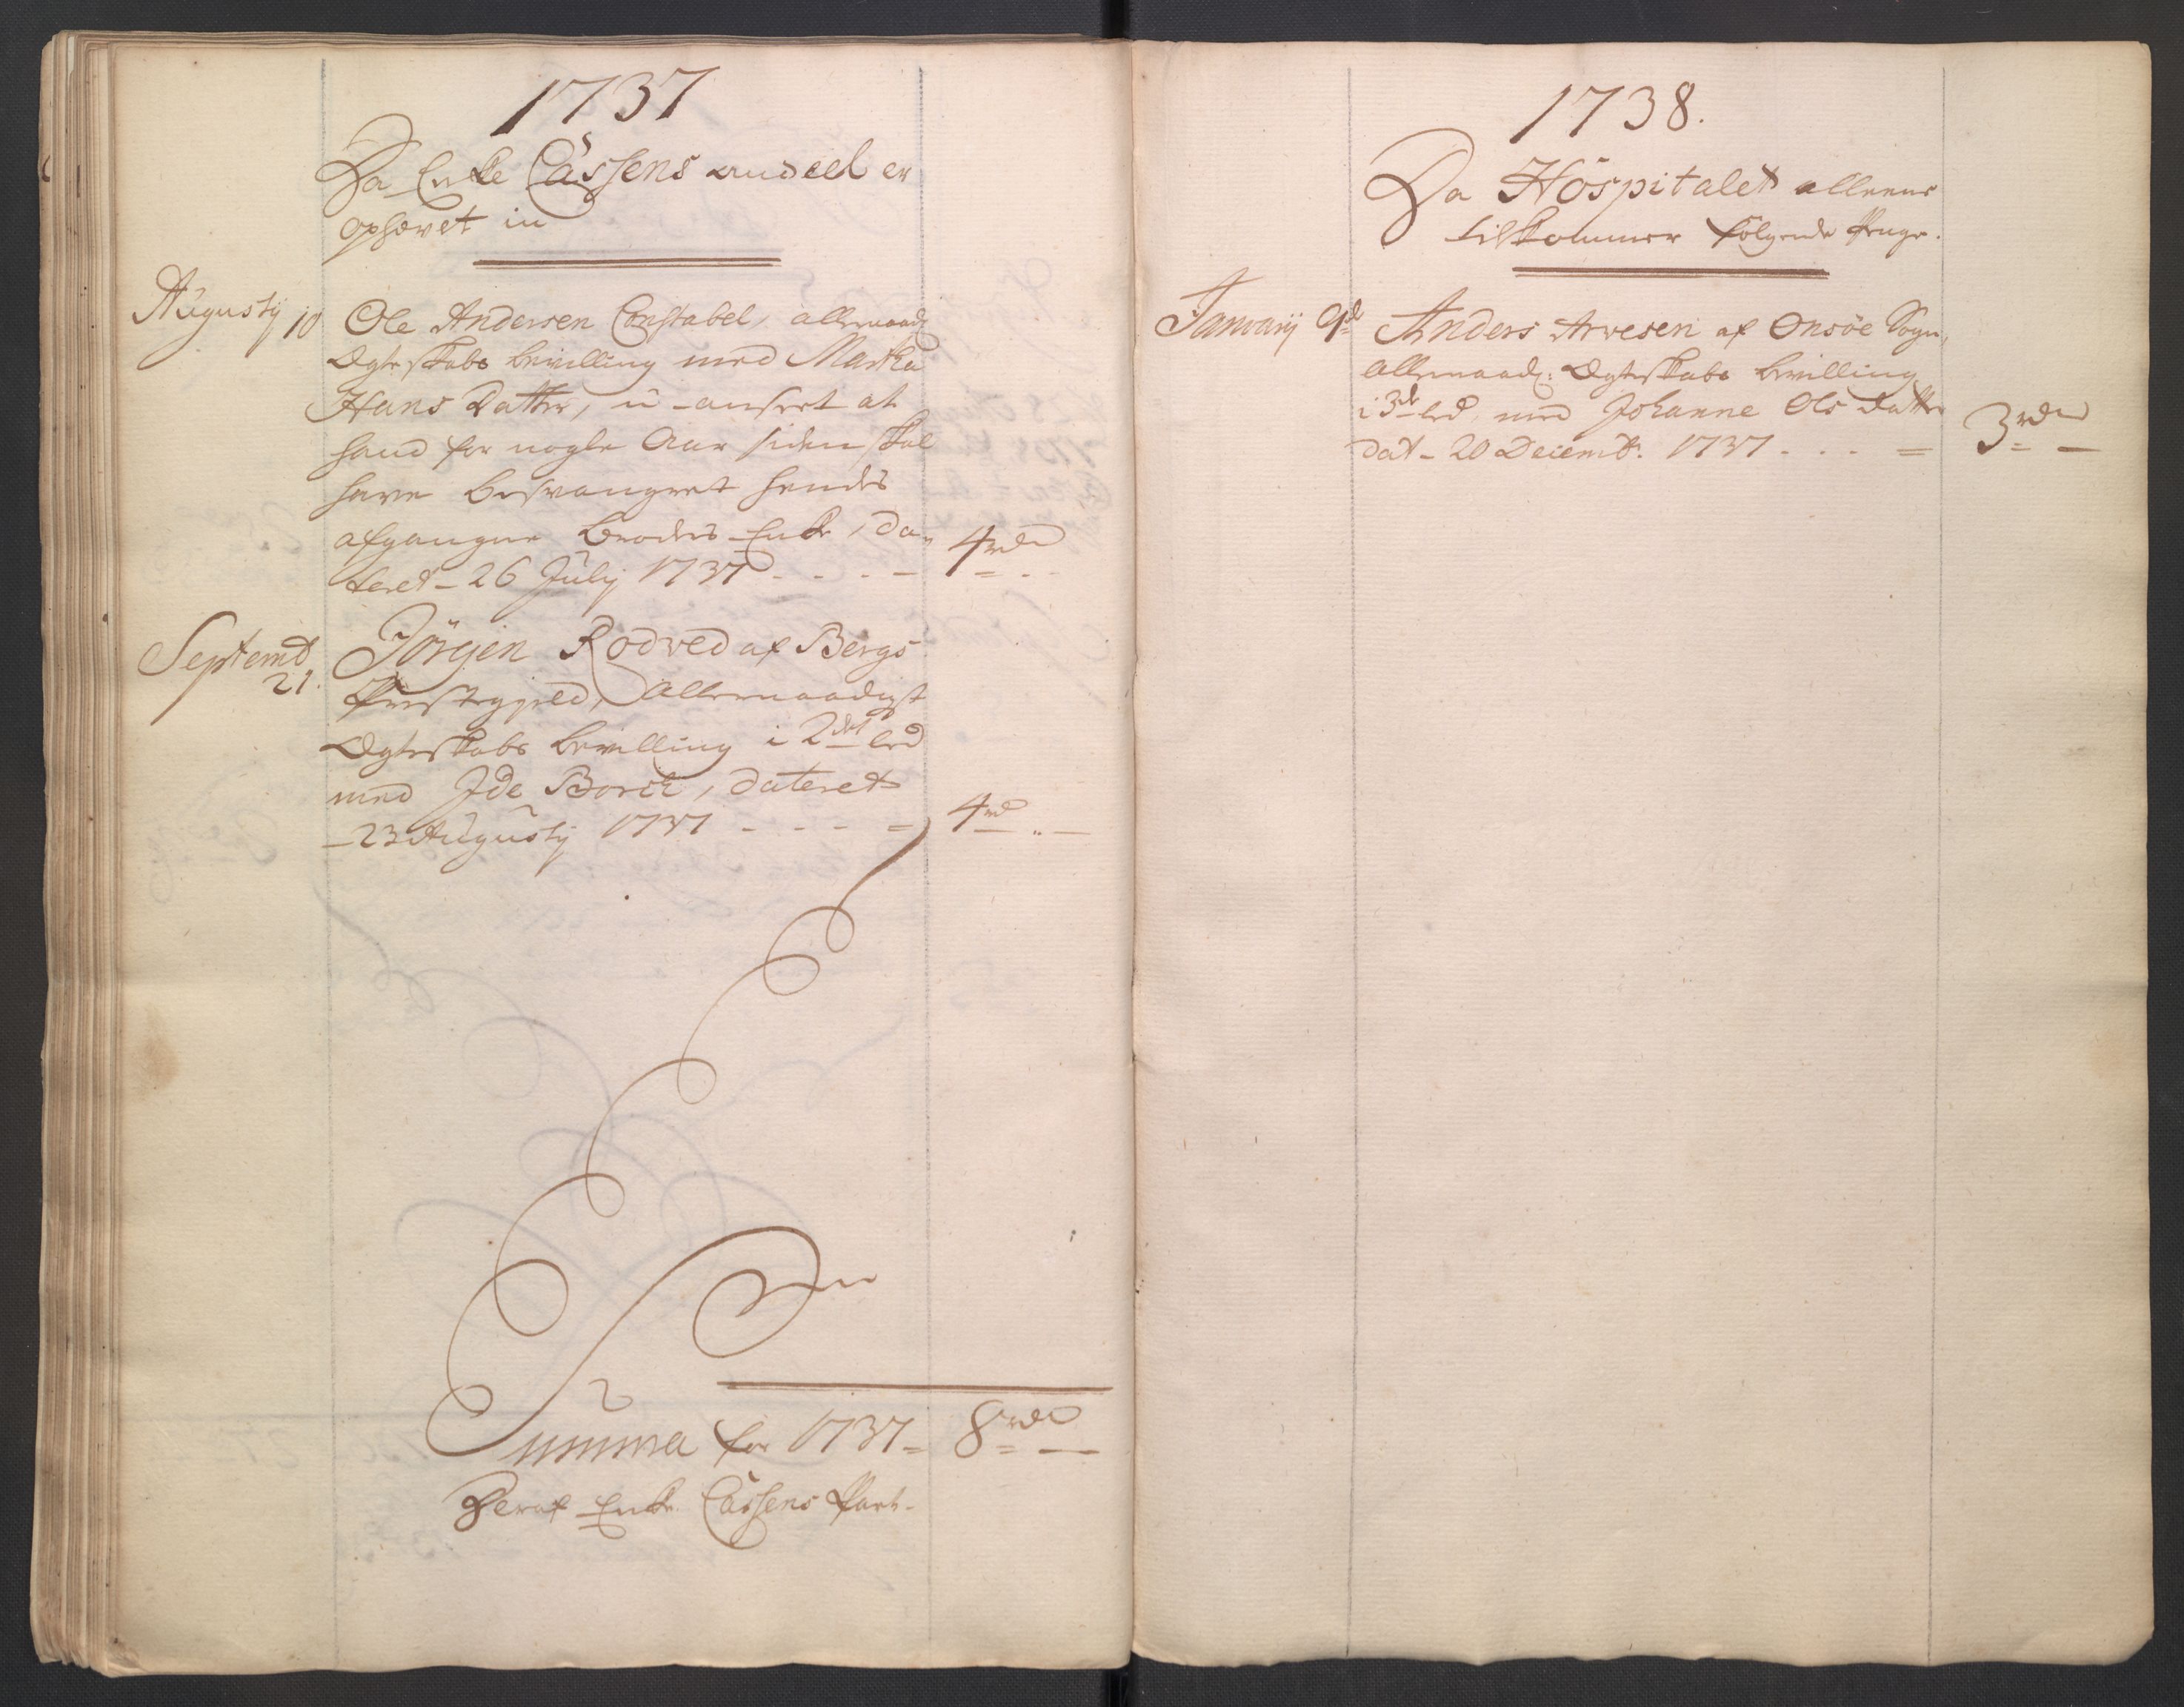 1737
Da Encke Cassens andeel er
ophævet in
Augustij 10 Ole Andersen Constabel, allernaad:
Ægteskabs bevilling med Martha
Hans Datter, u-anseet at
hand for nogle Aar siden skal
have besvangret hendes
afgangne Broders Encke, da-
teret - 26 Julij 1737 - - - - 4 rd
Septembr 21. Jörgen Rodved af Bergs
Præstegjeld, Allernaadigst
Ægteskabs bevilling i 2det led
med Ide Borch, dateret
- 23 Augustij 1737 - - - = 4 rd
Summa for 1737 = 8 rd
Heraf Encke Cassens Part -
1738.
Da Hospitalet alleene
tilkommer følgende Penge.
Januarij 9de Anders Arvesen af Onsöe Sogn,
Allernaad: Ægteskabs bevilling
i 3de led med Johanne Ols datter
dat - 20 Decembr: 1737 - - - = 3 rd